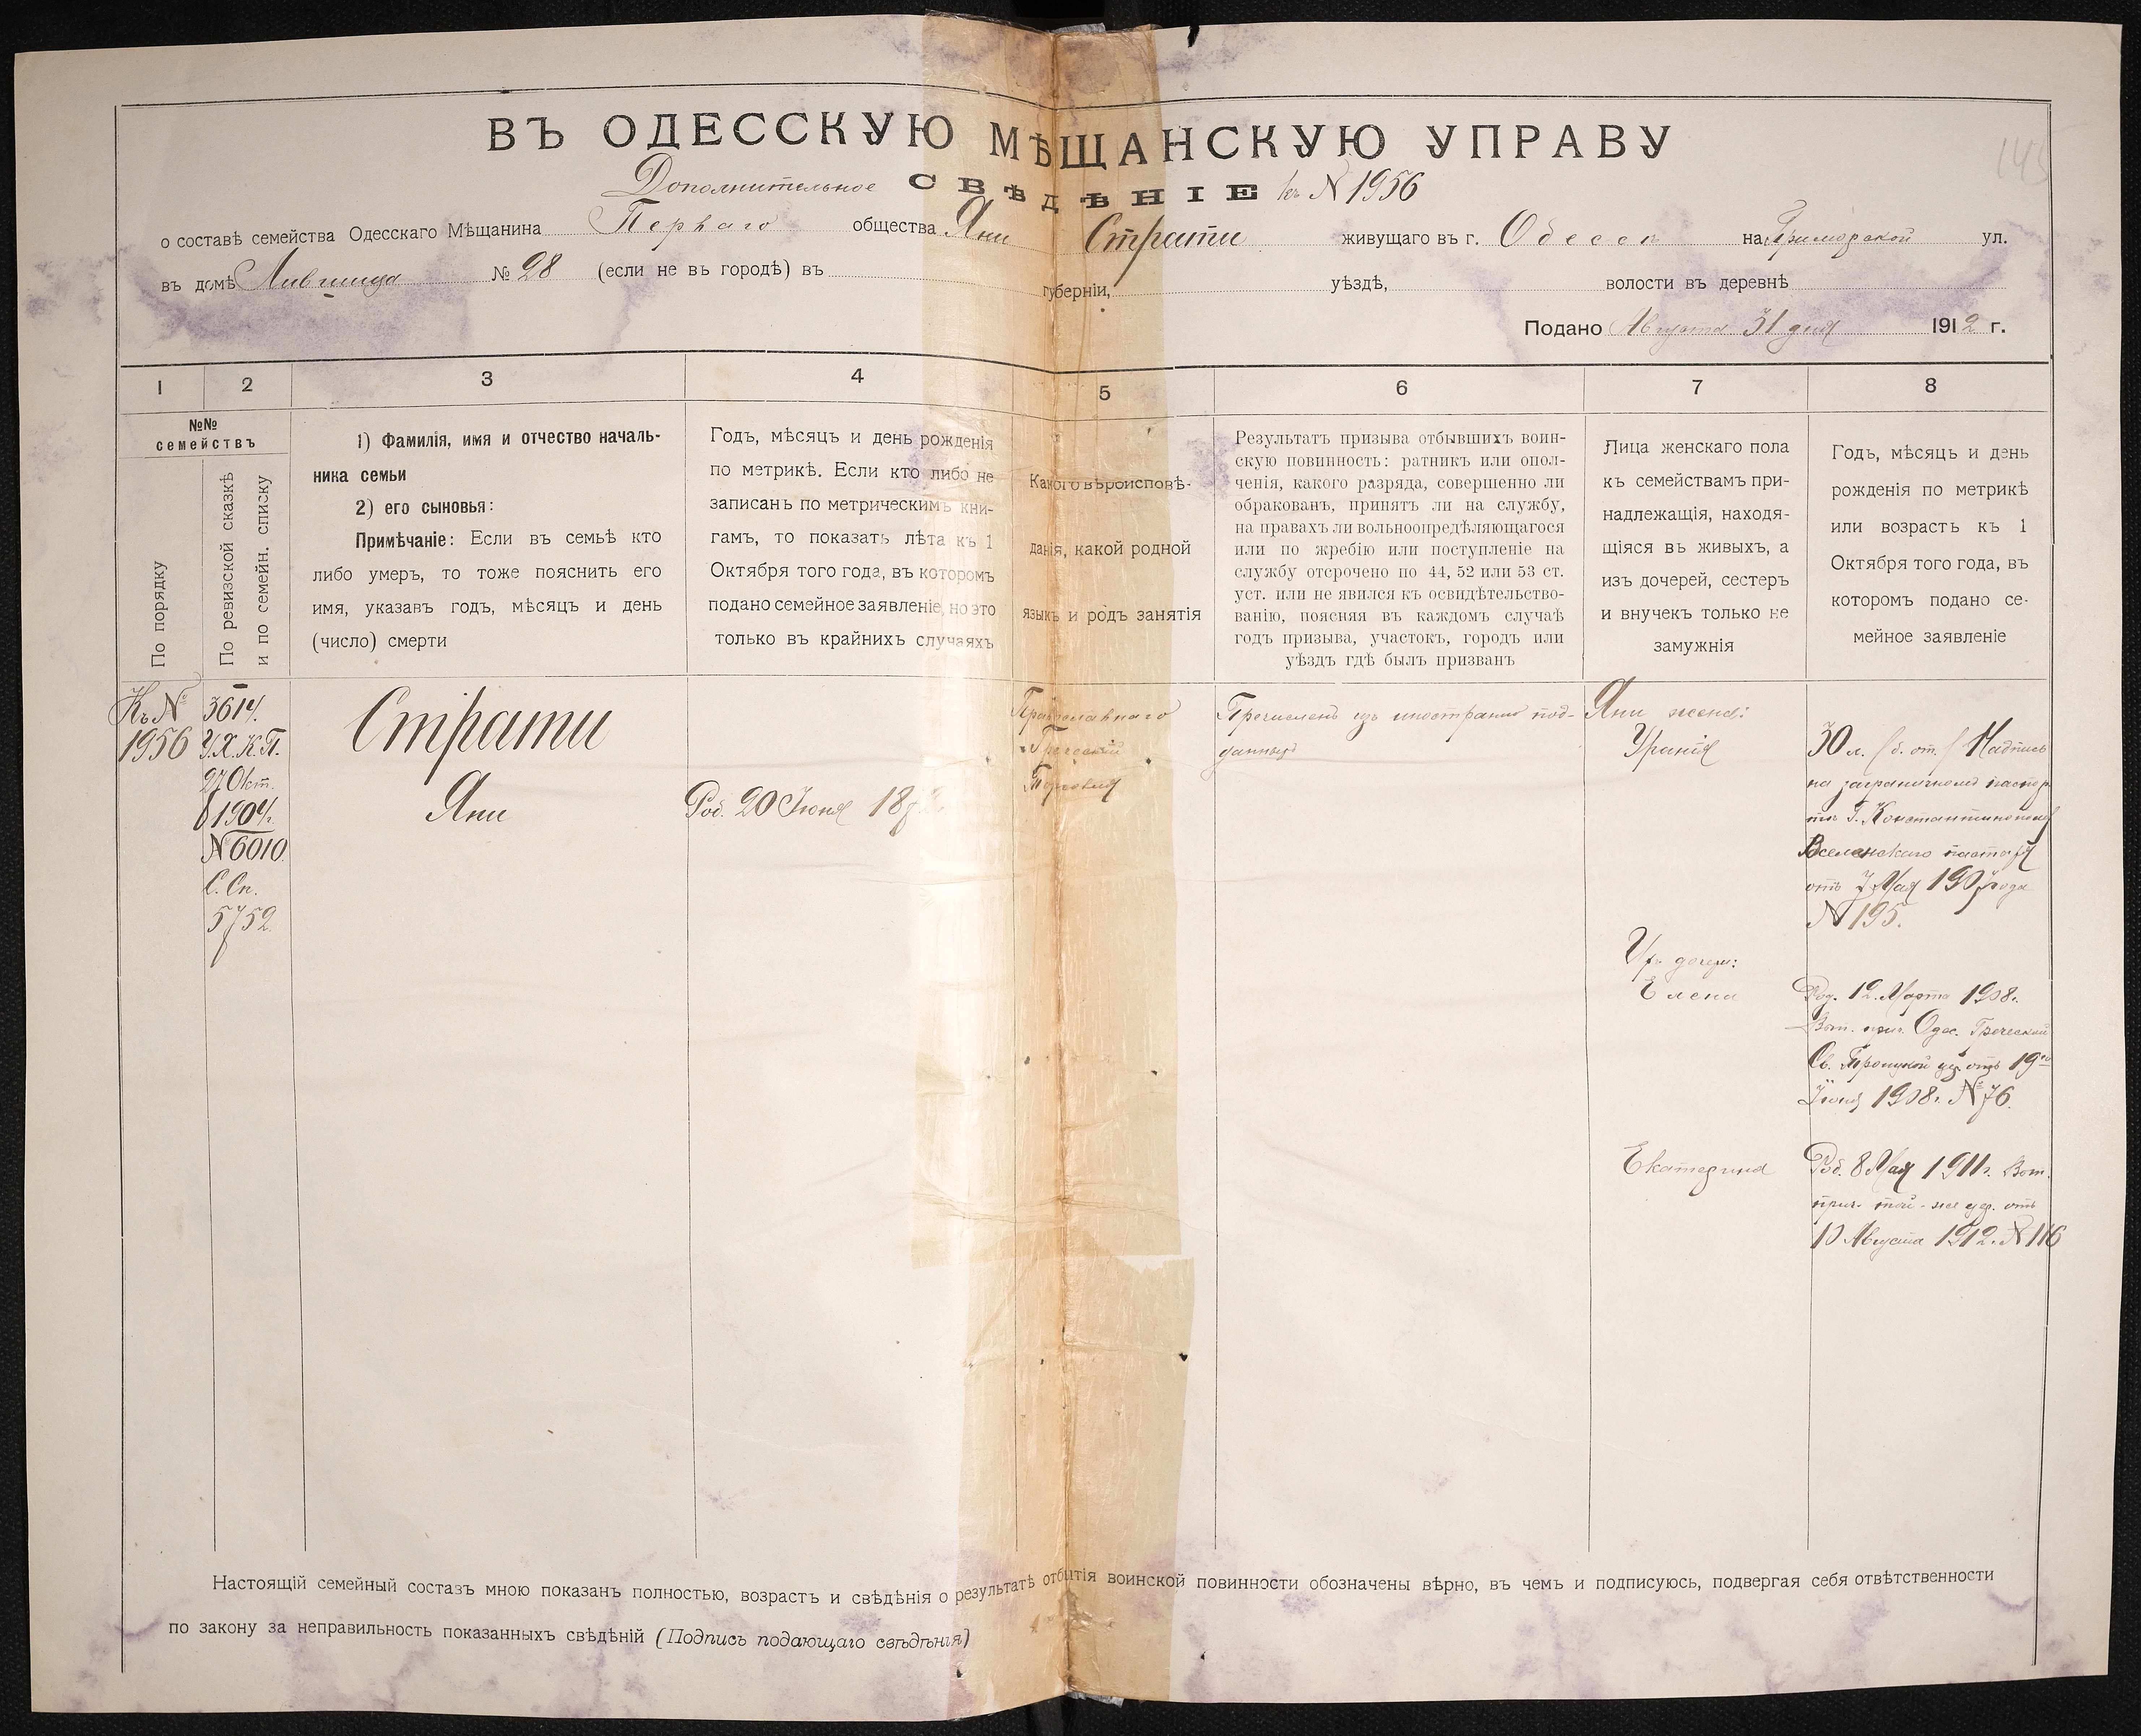 145
ВЪ ОДЕССКУЮ МѢЩАНСКУЮ УПРАВУ
Дополнительное СВѢДѢНІЕ къ № 1956
о составѣ семейства Одесскаго Мѣщанина Перваго общества Яни Страти живущаго въ г. Одессѣ на Приморской ул.
въ домѣ Лившица № 28 (если не въ городѣ) въ губерніи, уѣздѣ, волости въ деревнѣ
Подано Августа 31 дня 1912 г.
1 2 3 4 5 6 7 8
№№
семействъ
По порядку
По ревизской сказкѣ
и по семейн. списку
1) Фамилія, имя и отчество началь-
ника семьи
2) его сыновья:
Примѣчаніе: Если въ семьѣ кто
либо умеръ, то тоже пояснить его
имя, указавъ годъ, мѣсяцъ и день
(число) смерти
Годъ, мѣсяцъ и день рожденія
по метрикѣ. Если кто либо не
записанъ по метрическимъ кни-
гамъ, то показать лѣта къ 1
Октября того года, въ которомъ
подано семейное заявленіе, но это
только въ крайнихъ случаяхъ
Какого вѣроисповѣ-
данія, какой родной
языкъ и родъ занятія
Результатъ призыва отбывшихъ воин-
скую повинность: ратникъ или опол-
ченія, какого разряда, совершенно ли
обракованъ, принятъ ли на службу,
на правахъ ли вольноопредѣляющагося
или по жребію или поступленіе на
службу отсрочено по 44, 52 или 53 ст.
уст. или не явился къ освидѣтельство-
ванію, поясняя въ каждомъ случаѣ
годъ призыва, участокъ, городъ или
уѣздъ гдѣ былъ призванъ
Лица женскаго пола
къ семействамъ при-
надлежащія, находя-
щіяся въ живыхъ, а
изъ дочерей, сестеръ
и внучекъ только не
замужнія
Годъ, мѣсяцъ и день
рожденія по метрикѣ
или возрастъ къ 1
Октября того года, въ
которомъ подано се-
мейное заявленіе
Къ №
1956
3614.
У.Х.К.П.
27 Окт.
1904г.
№ 6010
С. Сп.
5752.
Страти
Яни
Род. 20 Іюня 187
Православнаго
Греческій
Торговля
Перечисленъ изъ иностранн. под-
данныхъ
Яни жена:
Уранія
30 л. Надпись
на заграничномъ паспор
тѣ Г. Константинополя
Вселенскаго
отъ 7 Мая 1907 года
№ 195.
Ихъ дочери:
Елена
Род. 12 Марта 1908г.
прич. Одес. Греческой
Св. Троицкой цер. отъ 19го
Іюня 1908г. № 76.
Екатерина
Род. 8 Мая 1911г.
прич. той-же цер. отъ
10 Августа 1912г. № 116
Настоящій семейный составъ мною показанъ полностью, возрастъ и свѣдѣнія о результатѣ отбытія воинской повинности обозначены вѣрно, въ чемъ и подписуюсь, подвергая себя отвѣтственности
по закону за неправильность показанныхъ свѣдѣній (Подпись подающаго свѣдѣнія)